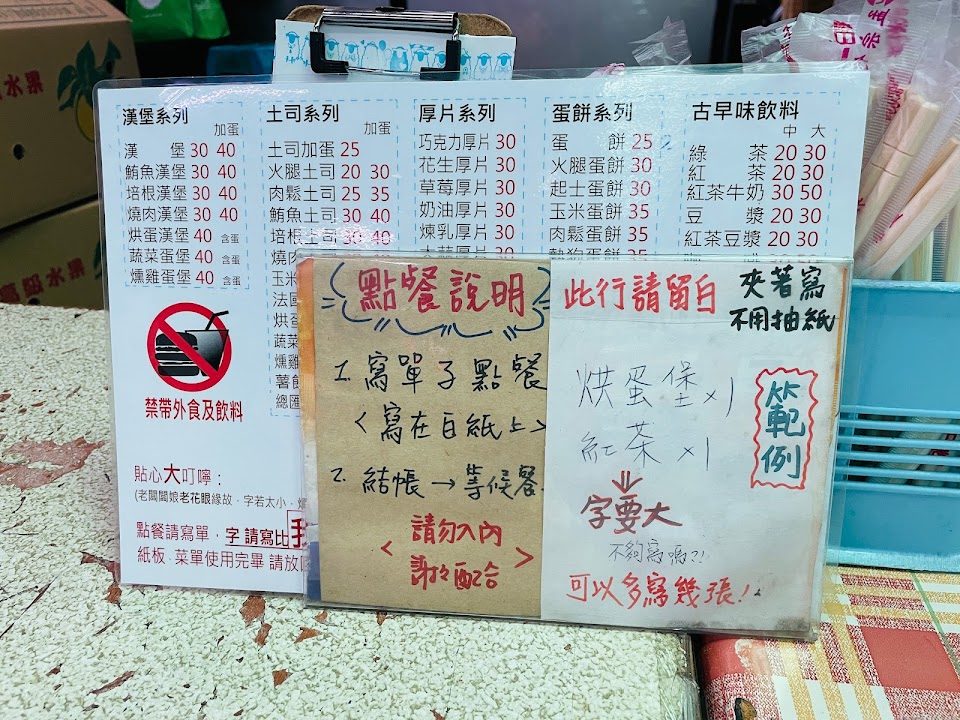 漢堡系列
加蛋
漢 堡 30 40
鮪魚漢堡 30 40
培根漢堡 30 40
燒肉漢堡 30 40
烘蛋漢堡 40 含蛋
蔬菜蛋堡 40 含蛋
燻雞蛋堡 40 含蛋
禁帶外食及飲料
貼心大叮嚀：
(老闆闆娘老花眼緣故，字若太小，
點餐請寫單，字 請寫比
紙板，菜單使用完畢 請放
土司系列
加蛋
土司加蛋 25
火腿土司 20 30
肉鬆土司 25 35
鮪魚土司 30 40
培根土司 30 40
燒肉
玉米
法國
烘蛋
蔬菜
燻雞
薯餅
總匯
厚片系列
巧克力厚片 30
花生厚片 30
草莓厚片 30
奶油厚片 30
煉乳厚片 30
蛋餅系列
蛋 餅 25
火腿蛋餅 30
起士蛋餅 30
玉米蛋餅 35
肉鬆蛋餅 35
古早味飲料
中 大
綠 茶 20 30
紅 茶 20 30
紅茶牛奶 30 50
豆 漿 20 30
紅茶豆漿 20 30
點餐說明
1. 寫單子點餐
<寫在白紙上>
2. 結帳→等候餐.
<請勿入內
謝々配合>
此行請留白
夾著寫
不用抽紙
烘蛋堡×1
紅茶 ×1
範例
字要大
不夠寫嗎?!
可以多寫幾張!
水果
水果